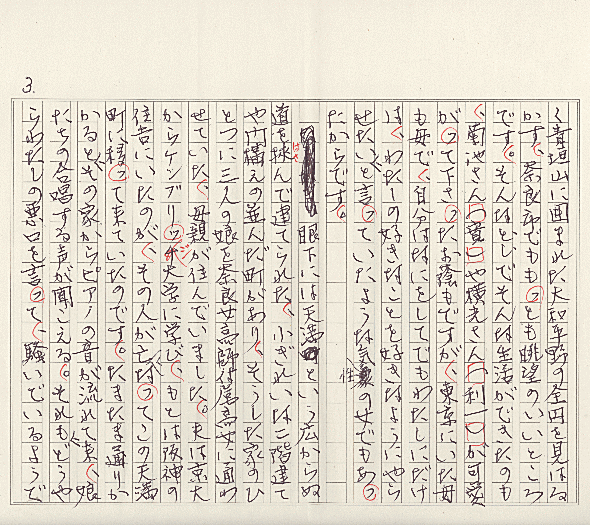 3.
く青垣山に囲まれた大和平野の全円を見はる
かす、奈良市でももっとも眺望のいいところ
です。そんなとしでそんな生活ができたのも
、菊池さん（寛）や横光さん（利一）が可愛
がって下さったお蔭もですが、東京にいた母
も母で、自分はなにをしてでもわたしにだけ
は、わたしの好きなことを好きなようにやら
せたいと言っていたような気性の女でもあっ
たからです。
眼下には天満町という広からぬ
道を挟んで建てられた、小ぎれいな二階建て
や門構えの並んだ町があり、そうした家のひ
とつに三人の娘を奈良女高師付属高女に通わ
せていた、母親が住んでいました。夫は京大
からケンブリッジ大学に学び、もとは阪神の
住吉にいたのが、その人が亡なってこの天満
町に移って来ていたのです。たまたま通りか
かるとその家からピアノの音が流れて来、娘
たちの合唱する声が聞こえる。それもどうや
らわたしの悪口を言って、騒いでいるようで